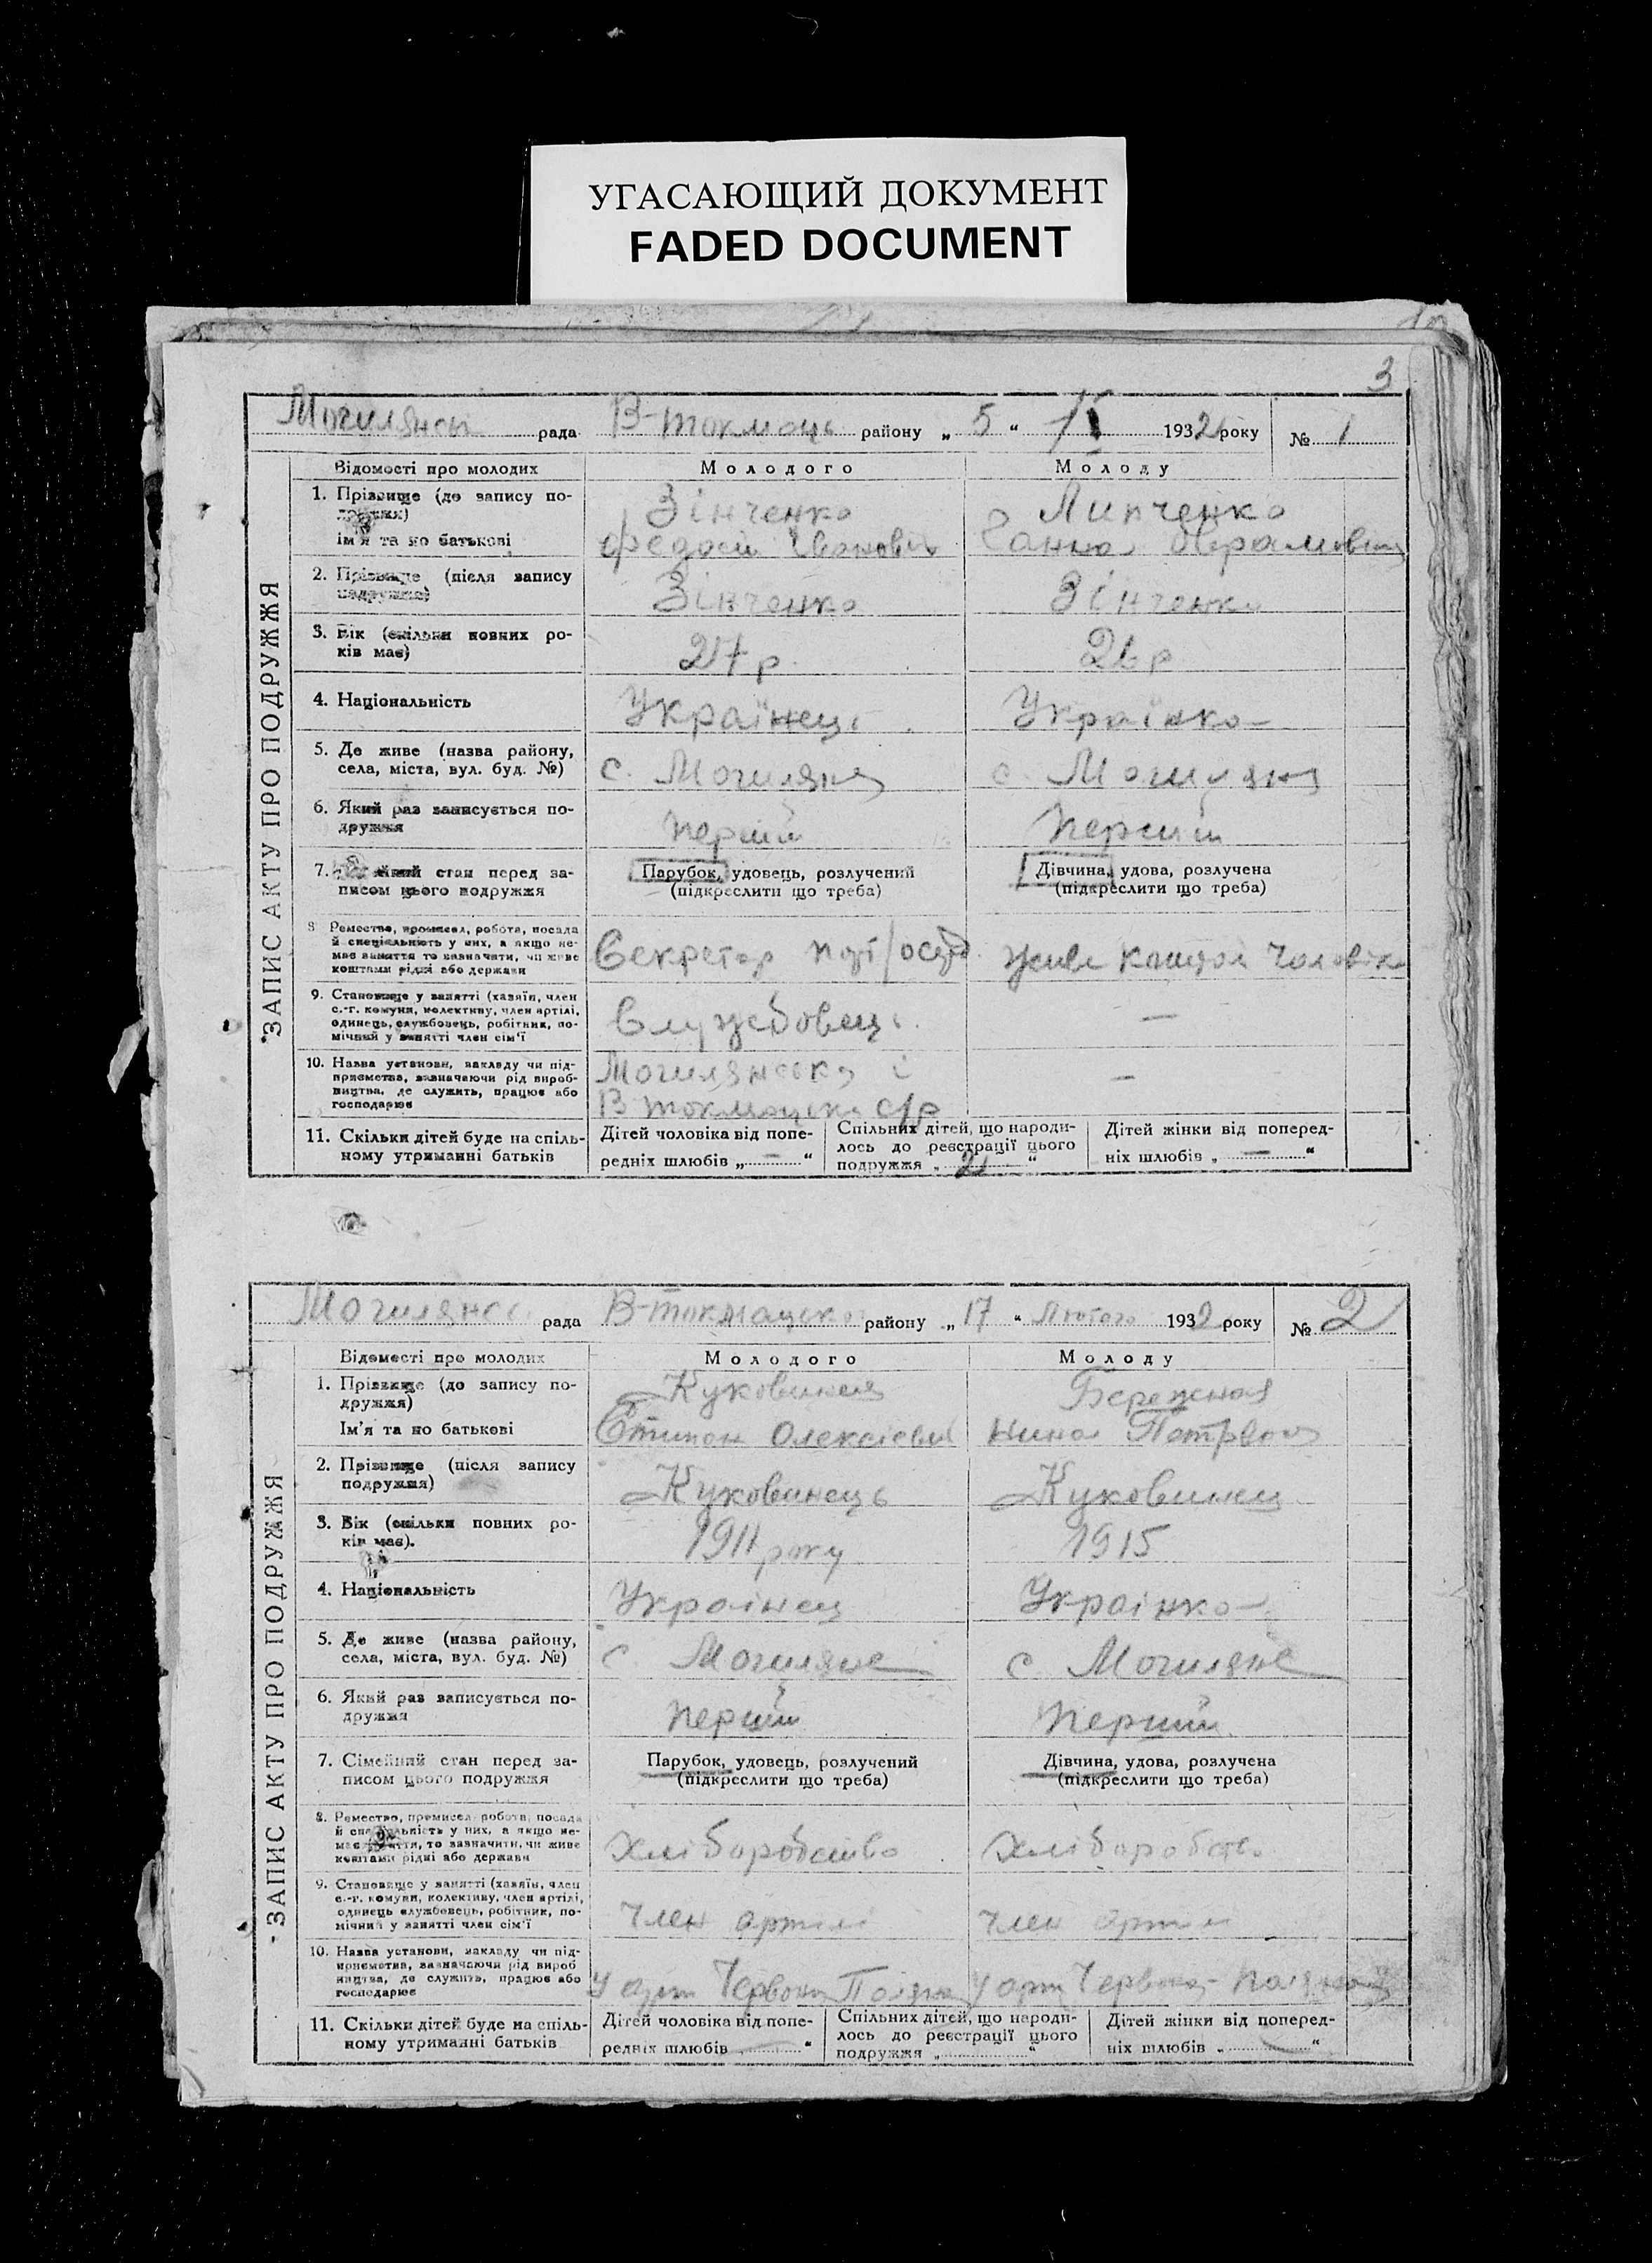 УГАСАЮЩИЙ ДОКУМЕНТ
FADED DOCUMENT
3
рада В-токмаць району „ 5 “ 1932 року № 1
ЗАПИС АКТУ ПРО ПОДРУЖЖЯ
Відомості про молодих Молодого Молоду
1. Прізвище (до запису по-
дружжя)
Зінченко
ім'я та по батькові
Ганна
2. Прізвище (після запису
подружжя)
Зінченко Зінченко
3. Вік (скільки повних ро-
ків має)
27 р 26 р
4. Національність Українець Українка
5. Де живе (назва району,
села, міста, вул. буд. №)
с. Могиляни с. Могиляни
6. Який раз записується по-
дружжя
7. стан перед за-
писом цього подружжя
Парубок, удовець, розлучений
(підкреслити що треба)
Дівчина, удова, розлучена
(підкреслити що треба)
8 Ремество, промисел, робота, посада
й спеціяльність у них, а якщо не-
має заняття то зазначити, чи живе
коштами рідні або держави
Секретар живе коштом чоловіка
9. Становище у занятті (хазяїн, член
с.-г. комуни, колективу, член артілі,
одинець, службовець, робітник, по-
мічний у занятті член сім'ї
Службовець —
10. Назва установи, закладу чи під-
приємства, зазначаючи рід вироб-
ництва, де служить, працює або
господарює
Могилянська і
В токмацька с/р
—
11. Скільки дітей буде на спіль-
ному утриманні батьків
Дітей чоловіка від попе-
редніх шлюбів „ — “
Спільних дітей, що народи-
лось до реєстрації цього
подружжя „ 2 “
Дітей жінки від поперед-
ніх шлюбів „ — “
рада В-токмацько району „ 17 “ Лютого 1932 року № 2
ЗАПИС АКТУ ПРО ПОДРУЖЖЯ
Відомості про молодих Молодого Молоду
1. Прізвище (до запису по-
дружжя)
Бережная
Ім'я та по батькові
Олексієвич Нина
2. Прізвище (після запису
подружжя)
Куковинець
3. Вік (скільки повних ро-
ків має).
1911 року 1915
4. Національність Украінец Украінка
5. Де живе (назва району,
села, міста, вул. буд. №)
с. Могиляне с Могиляне
6. Який раз записується по-
дружжя
7. Сімейний стан перед за-
писом цього подружжя
Парубок, удовець, розлучений
(підкреслити що треба)
Дівчина, удова, розлучена
(підкреслити що треба)
8. Ремество, промисел, робота, посада
й спеціяльність у них, а якщо не-
має заняття, то зазначити, чи живе
коштами рідні або держави
Хліборобство
9. Становище у занятті (хазяїн, член
с.-г. комуни, колективу, член артілі,
одинець службовець, робітник, по-
мічний у занятті член сім'ї
член артілі член артілі
10. Назва установи, закладу чи під-
приємства, зазначаючи рід вироб
ництва, де служить, працює або
господарює
11. Скільки дітей буде на спіль-
ному утриманні батьків
Дітей чоловіка від попе-
редніх шлюбів „ “
Спільних дітей, що народи-
лось до реєстрації цього
подружжя „ “
Дітей жінки від поперед-
ніх шлюбів „ “